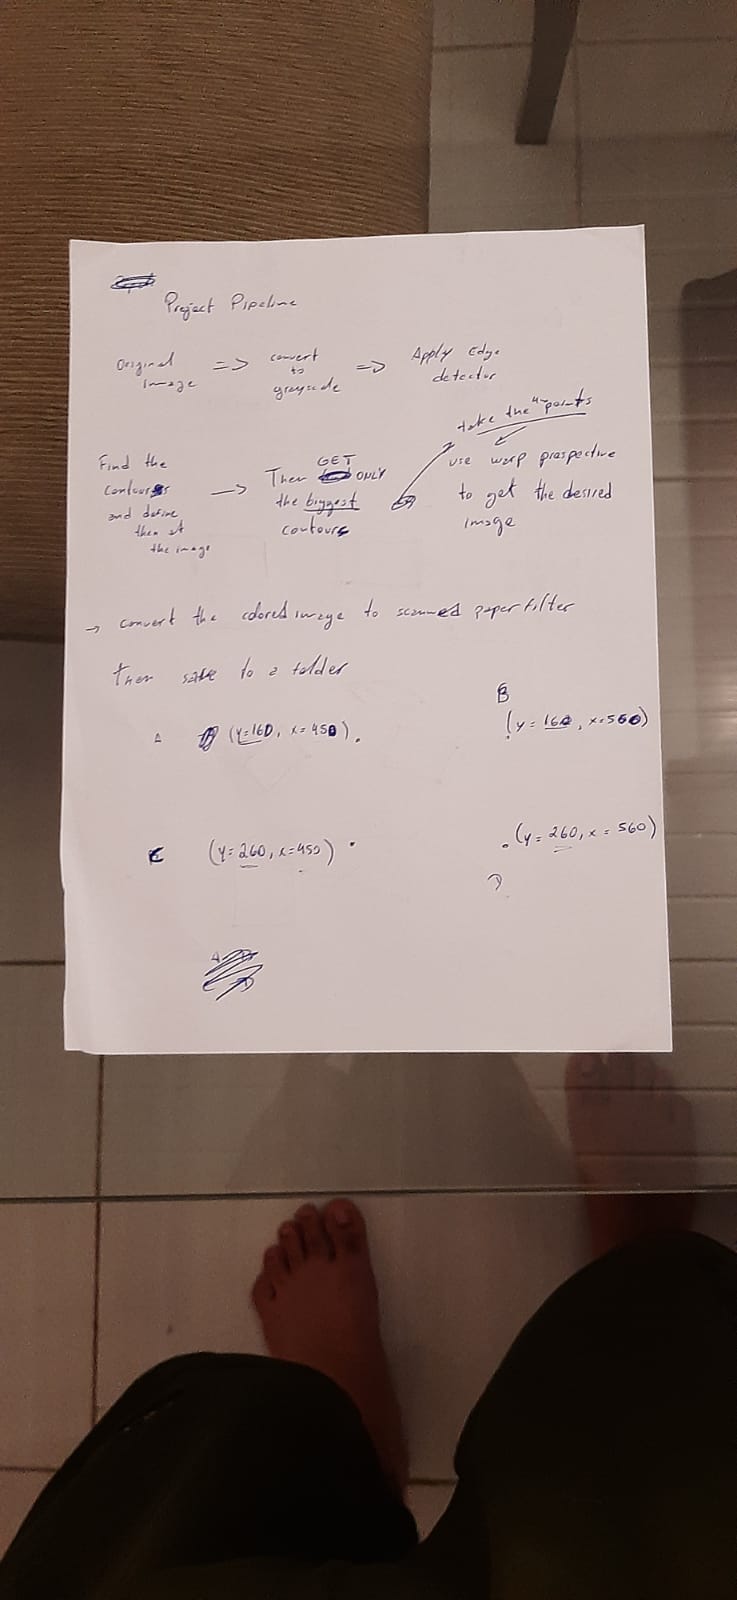 Project Pipeline
Original
image
=>
convert
to
grayscale
=>
Apply Edge
detector
Find the
contours
and define
them at
the image
->
Then GET ONLY
the biggest
contours
take the 4 points
use warp prespective
to get the desired
image
-> convert the colored image to scanned paper filter
then save to a folder
A (y=160, x=450).
B
(y=160, x=560)
C (y=260, x=450) .
. (y=260, x=560)
D